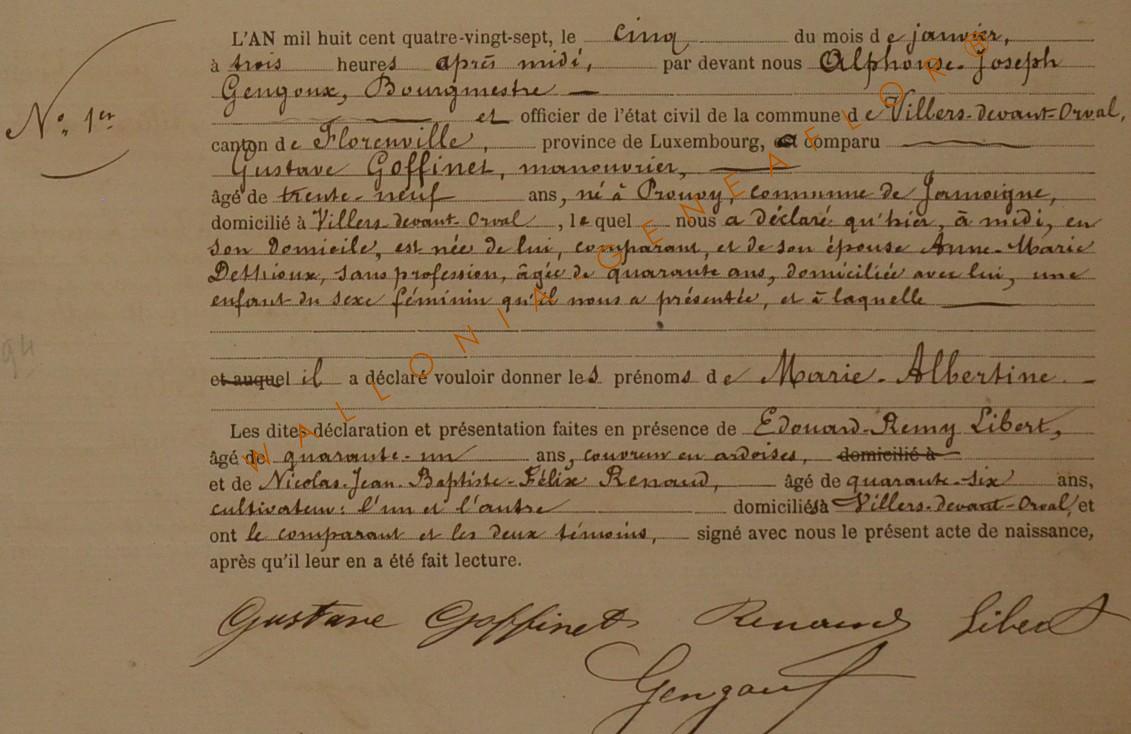 L'AN mil huit cent quatre-vingt-sept, le cinq du mois de janvier,
à trois heures après midi, par devant nous Alphonse-Joseph
Gengoux, Bourgmestre —
N° 1er
et officier de l'état civil de la commune de Villers-devant-Orval,
canton de Florenville, province de Luxembourg, a comparu
Gustave Goffinet, manouvrier, —
âgé de trente-neuf ans, né à Prouvy, commune de Jamoigne,
domicilié à Villers-devant-Orval, lequel nous a déclaré qu'hier, à midi, en
son domicile, est née de lui, comparant, et de son épouse Anne-Marie
sans profession, âgée de quarante ans, domiciliée avec lui, une
enfant du sexe féminin qu'il nous a présentée, et à laquelle —
et auquel il a déclaré vouloir donner les prénoms de Marie-Albertine —
Les dites déclaration et présentation faites en présence de Edouard-Remy Libert,
âgé de quarante-un ans, couvreur en ardoises, domicilié à
et de Nicolas-Jean-Baptiste-Félix Renaud, âgé de quarante-six ans,
cultivateur: l'un et l'autre domiciliés à Villers-devant-Orval, et
ont le comparant et les deux témoins, signé avec nous le présent acte de naissance,
après qu'il leur en a été fait lecture.
Gustave Goffinet Renaud Libert
Gengoux
94
WALLONIA GENEALOR®